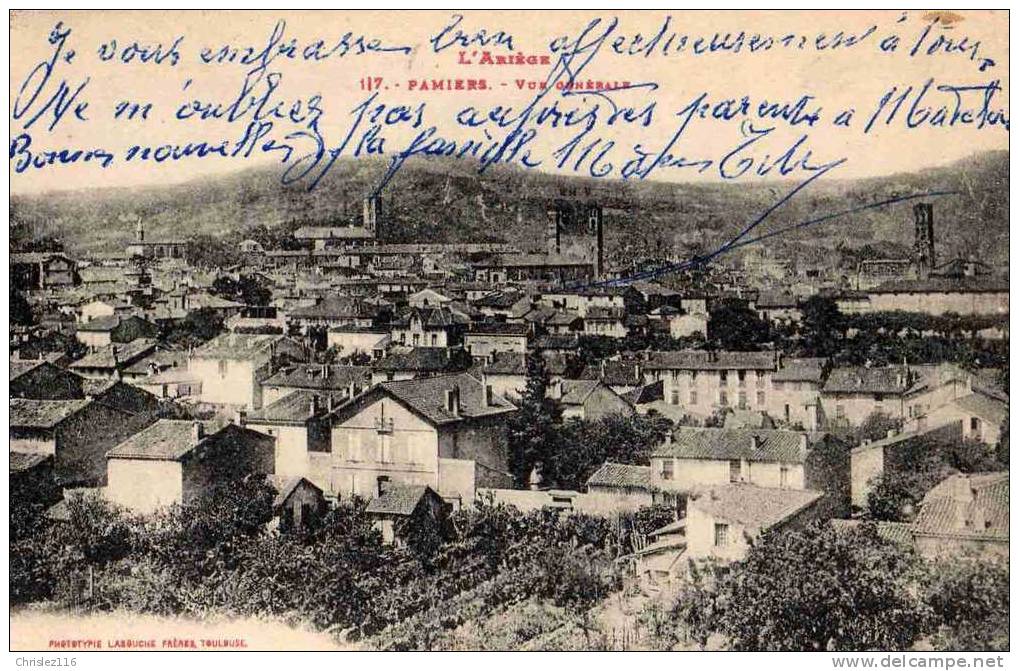 Je vous embrasse bien affectueusement à tous
L'ARIÈGE
117. - PAMIERS. - VUE GÉNÉRALE
Ne m'oubliez pas auprès des parents à
Bonnes nouvelles de la famille
PHOTOTYPIE LABOUCHE FRÈRES, TOULOUSE.
©Chrislez116
http://www.delcampe.net